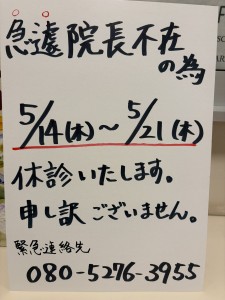 急遽院長不在
の為
5/14(木)～5/21(木)
休診いたします。
申し訳ございません。
緊急連絡先
080-5276-3955